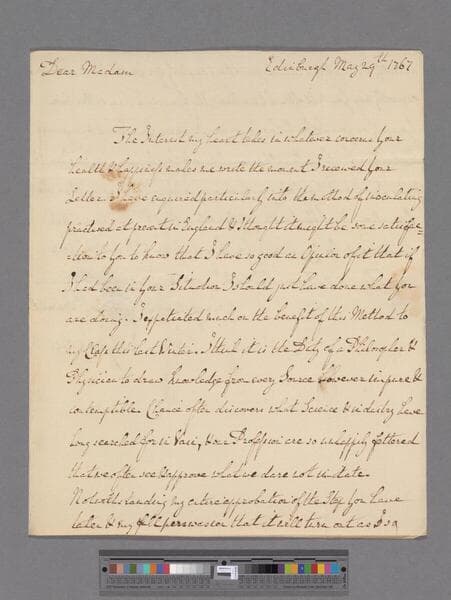 Dear Madam
Edinburgh May 29th 1767
The Interest my heart takes in whatever concerns your
health & happiness makes me write the moment I received your
Letter. I have enquired particularly into the method of inoculating
practised at present in England & I thought it might be some satisfac=
=tion to you to know that I have so good an Opinion of it that if
I had been in your Situation I should just have done what you
are doing. I expatiated much on the benefit of this Method to
my Class this last Winter. I think it is the Duty of a Philosopher &
Physician to draw knowledge from every Source however impure &
contemptible. Chance often discovers what Science & industry have
long searched for in Vain, & our Profession are so unhappily fettered
that we often see & approve what we dare not imitate.
Notwithstanding my entire approbation of the Step you have
taken & my persuasion that it will turn out as I so